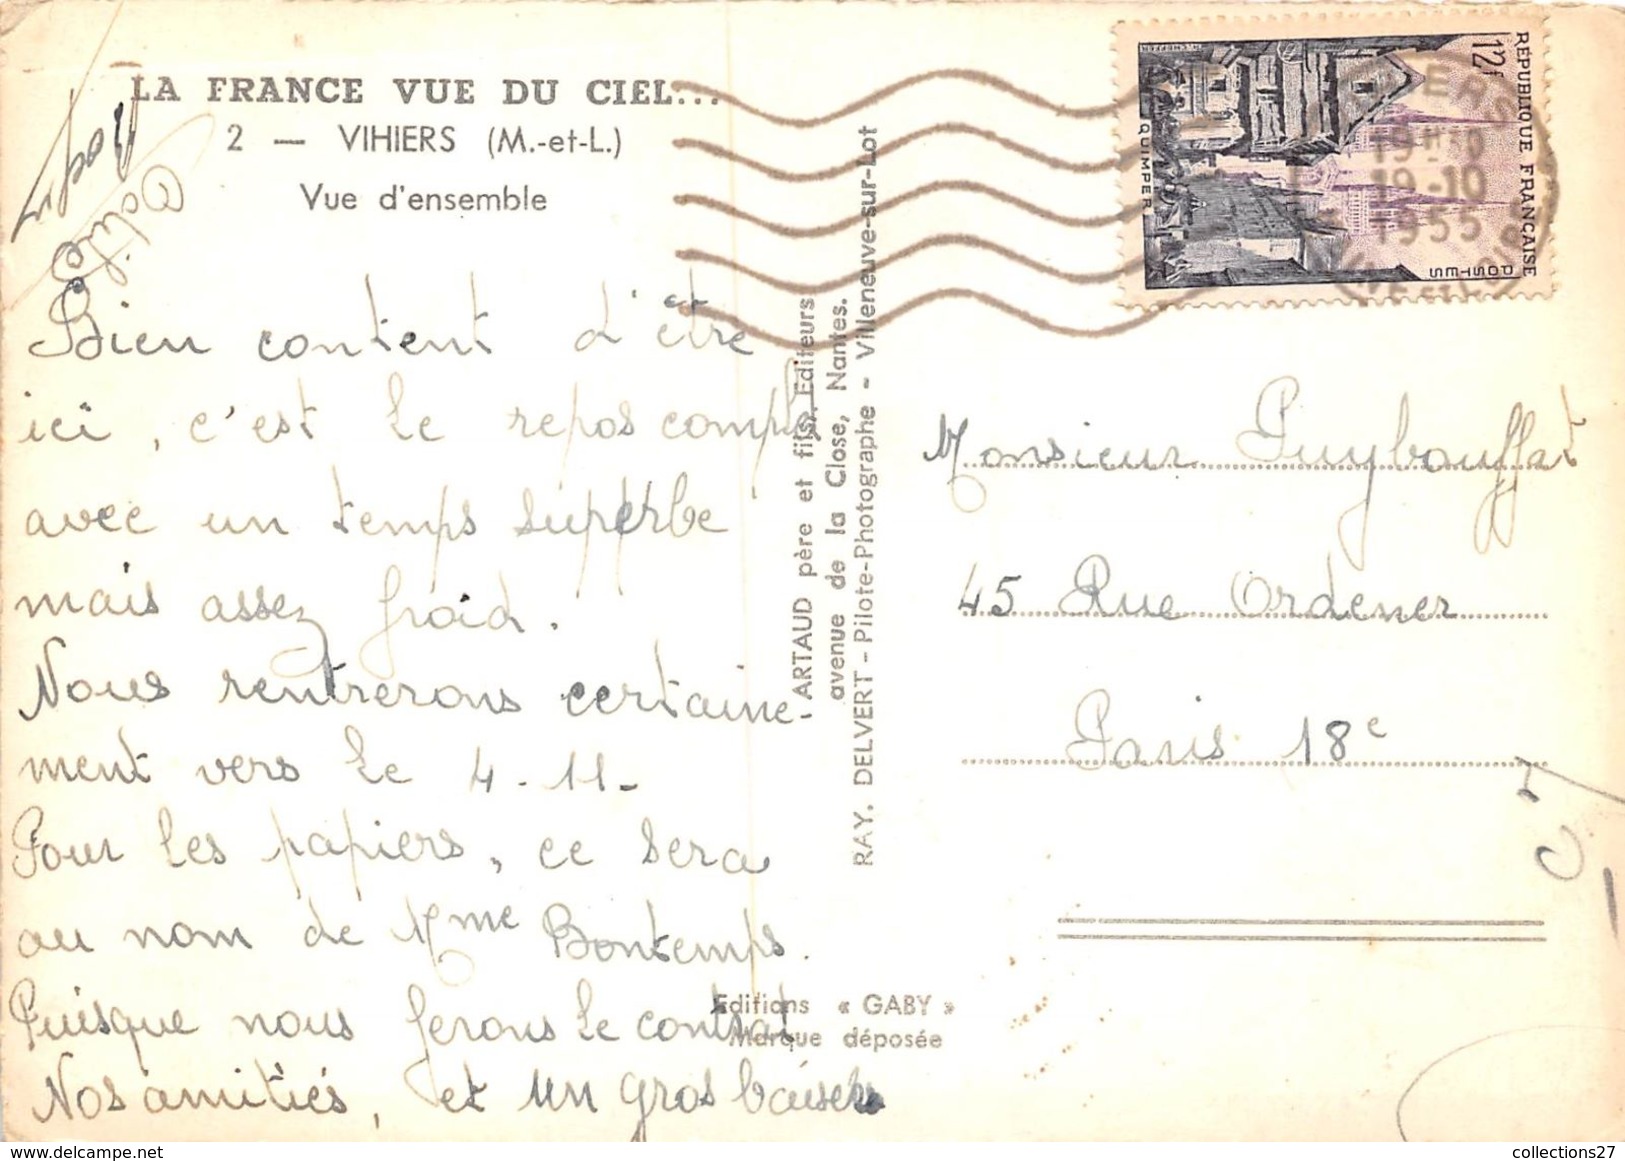 LA FRANCE VUE DU CIEL...
2 — VIHIERS (M.-et-L.)
Vue d'ensemble
Odile
Bien content d'être
ici, c'est le repos complet
avec un temps superbe
mais assez froid.
Nous rentrerons certaine-
ment vers le 4-11-
Pour les papiers, ce sera
au nom de Mme Bontemps.
Puisque nous ferons le contrat
Nos amitiés, et un gros baiser
ARTAUD père et fils, Editeurs
avenue de la Close, Nantes.
RAY. DELVERT - Pilote-Photographe - Villeneuve-sur-Lot
Editions « GABY »
Marque déposée
RÉPUBLIQUE FRANÇAISE
12f
POSTES
QUIMPER
19-10
1955
Monsieur Puybouffat
45 Rue Ordener
Paris 18e
collections27